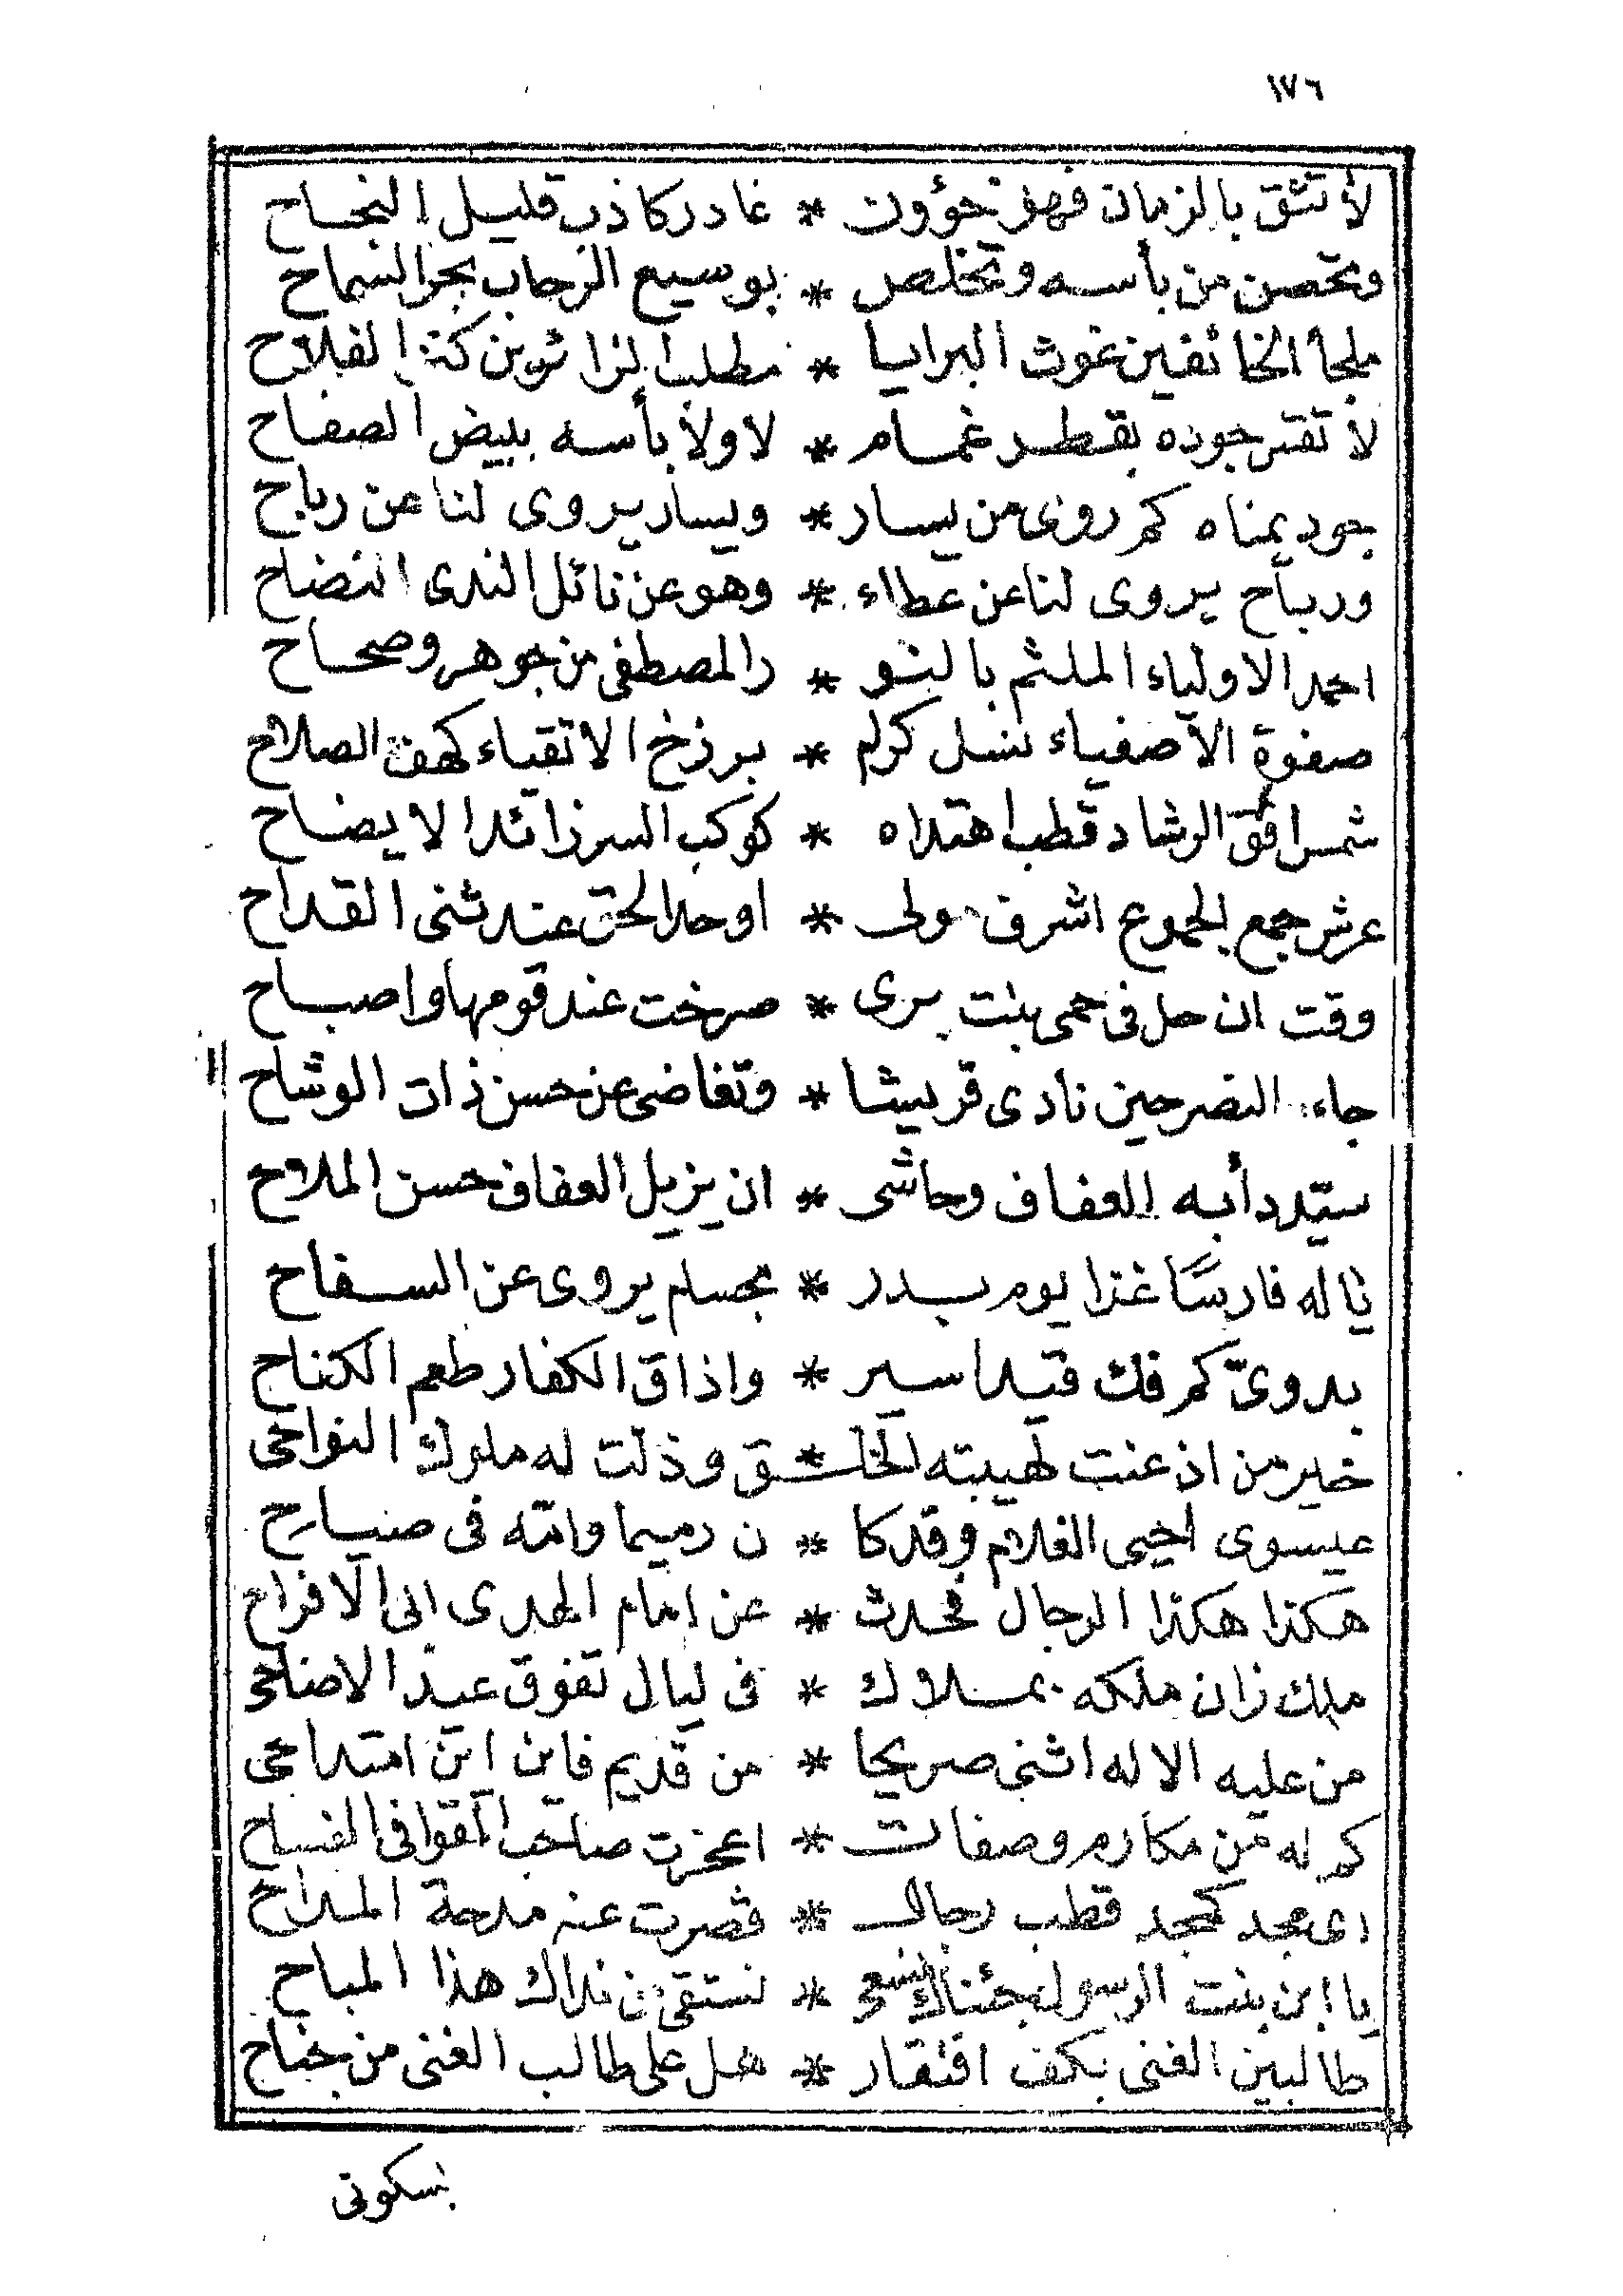 ١٧٦
لا تثق بالزمان فهو خؤون * غادر كاذب قليل النجاح
وتحصن من بأسه وتخلص * بوسيع الرحاب بحر السماح
ملجأ الخائفين غوث البرايا * مطلب الزائرين كنز الفلاح
لا تقس جوده بقطر غمام * لا ولا بأسه ببيض الصفاح
جود يمناه كم روى من يسار * ويسار يروى لنا عن رباح
ورباح يروى لنا عن عطاء * وهو عن نائل الندى النضاح
احمد الاولياء الملثم بالنو * ر المصطفى من جوهر وصحاح
صفوة الاصفياء نسل كرام * برزخ الاتقياء كهف الصلاح
شمس افق الرشاد قطب اهتداه * كوكب السر زائد الايضاح
عرش جمع الجموع اشرف مولى * اوحد الحق عند ثنى القداح
وقت ان حل فى حمى بنت برى * صرخت عند قومها واصباح
جاءه النصر حين نادى قريشا * وتغاضى عن حسن ذات الوشاح
سيد دأبه العفاف وحاشى * ان يزيل العفاف حسن الملاح
ياله فارسًا غزا يوم بدر * بحسام يروى عن السفاح
بدوىّ كم فك قيد اسير * واذاق الكفار طعم الكفاح
خير من اذعنت لهيبته الخلـ * ـق وذلت له ملوك النواحى
عيسوى احيى الغلام وقد كا * ن رميما وامه فى صياح
هكذا هكذا الرجال فحدث * عن امام الهدى ابى الافراح
ملك زان ملكه بملاك * فى ليال تفوق عيد الاضاحى
من عليه الاله اثنى صريحا * من قديم فاين اين امتداحى
كم له من مكارم وصفات * اعجزت صاحب القوافى الفساح
اى مجد كمجد قطب رجال * قصرت عنه مدحة المداح
يا ابن بنت الرسول جئناك نسعى * نستقى من نداك هذا المباح
طالبين الغنى بكف افتقار * هل على طالب الغنى من جناح
بسكوتى